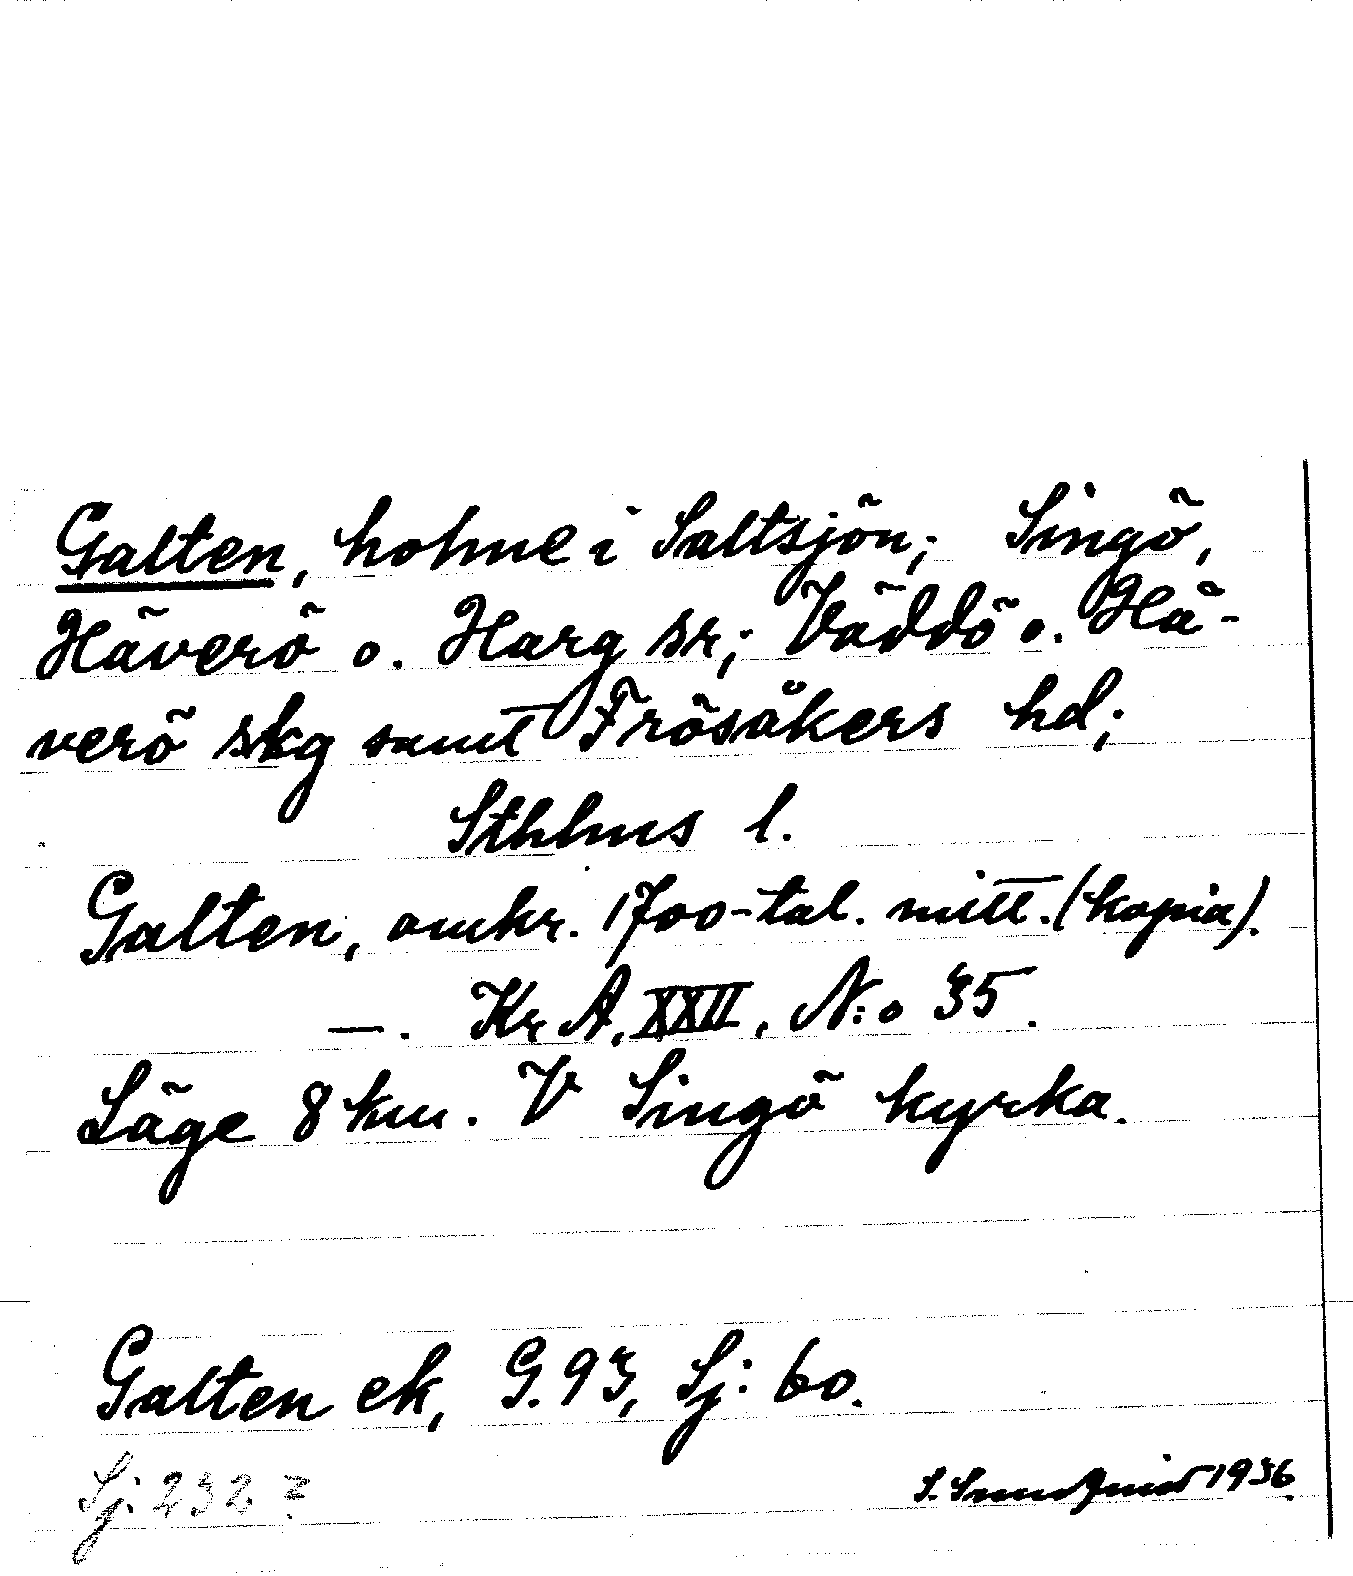 Galten, holme i Saltsjön; Singö,
Häverö o. Harg sr; Väddö o. Hä-
verö skg samt Frösåkers hd;
Sthlms l.
Galten, omkr. 1700-tal. mitt. (kopia).
—. Kr A, XXII, N:o 35.
Läge 8 km. V Singö kyrka.
Galten ek, G. 93, Sj: 60.
Sj: 232 ?
S. 1936.